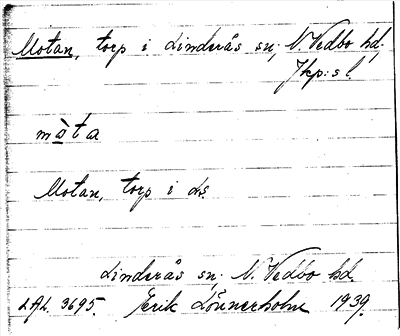 Motan, torp i Linderås sn; N. Vedbo hd;
Jkp:s l.
mà̱ta
Motan, torp i Ls.
Linderås sn; N. Vedbo hd.
LAL. 3695. Erik Lönnerholm 1939.